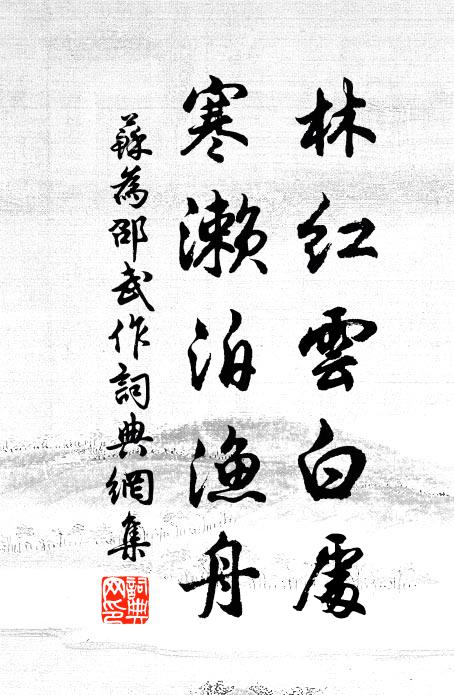 林紅雲白處
寒瀨泊漁舟
蘇為邵武作詞典網集
詞典网印